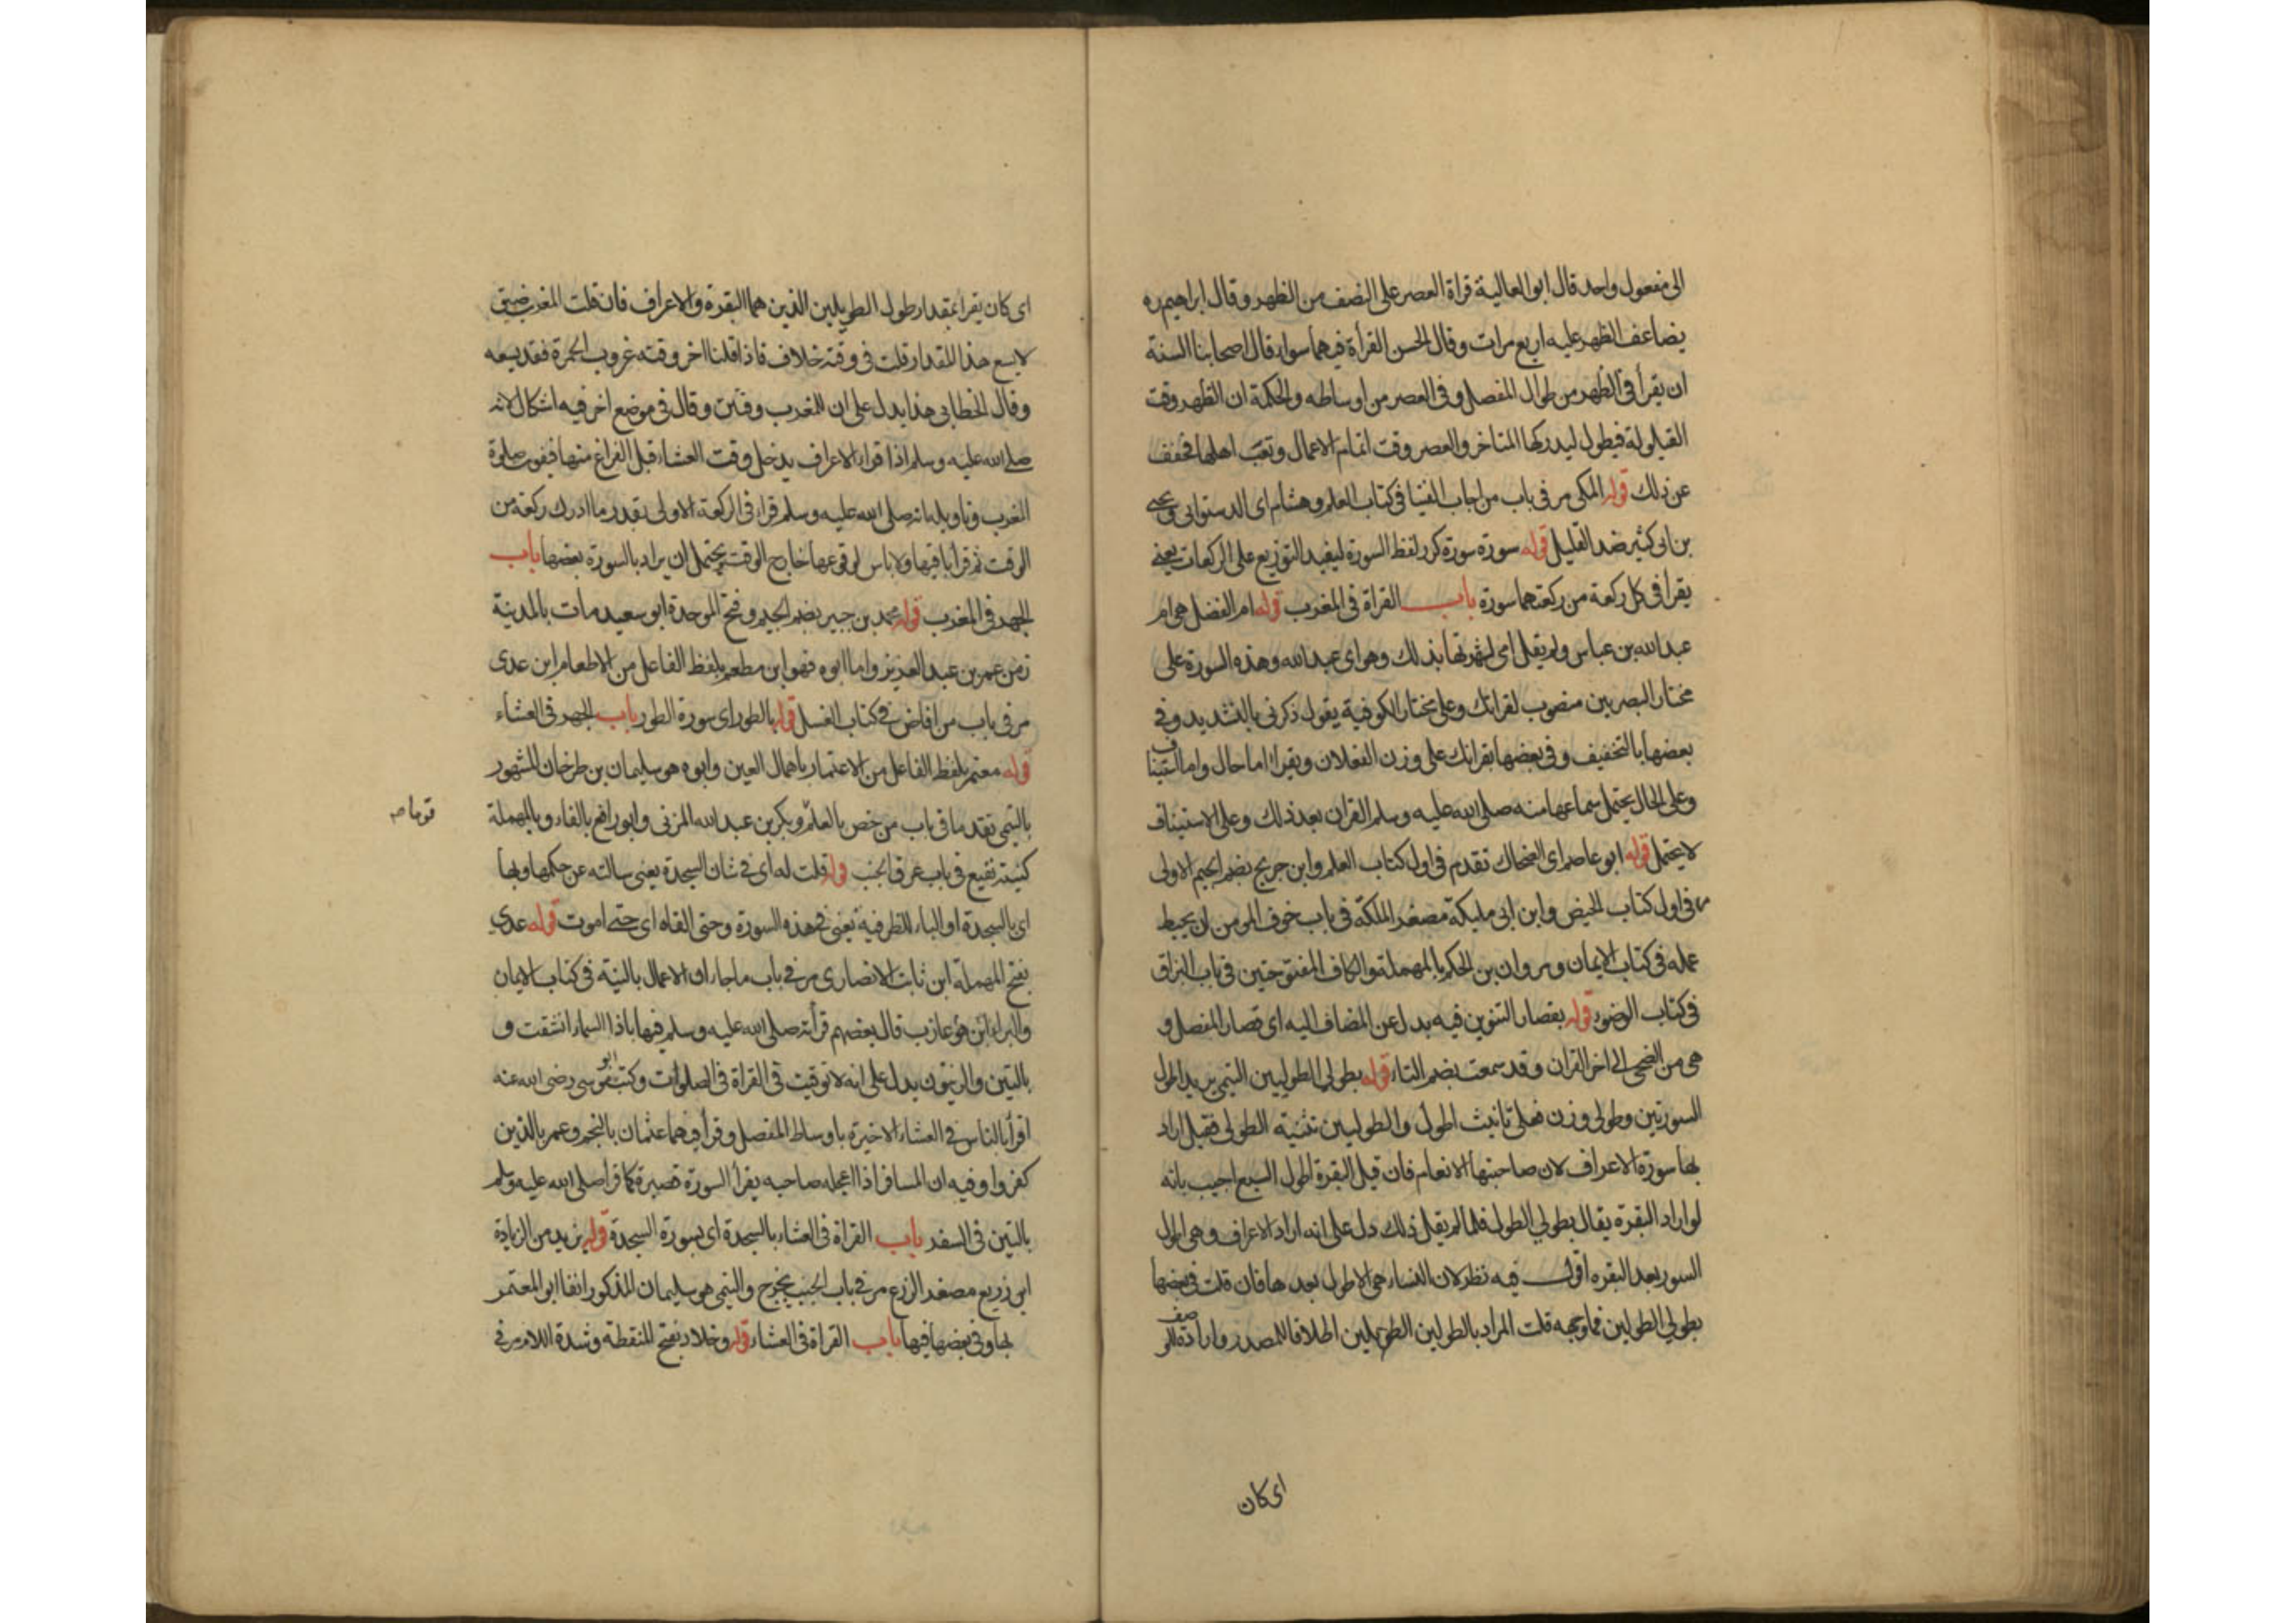 الى مفعول واحد قال ابو العالية قراة العصر على النصف من الظهر وقال ابراهيم
يضاعف الظهر عليه اربع مرات وقال الحسن القرأة فيهما سواء قال اصحابنا السنة
ان يقرأ في الظهر من طوال المفصل وفى العصر من اوساطه والحكمة ان الظهر وقت
القيلولة فيطول ليدركها المتاخر والعصر وقت اتمام الاعمال وتعب اهلها فخفف
عن ذلك قوله المكى مر فى باب من اجاب الفتيا فى كتاب العلم وهشام اى الدستوائى ويحيى
بن ابى كثير ضد القليل قوله سورة سورة كرر لفظ السورة ليفيد التوزيع على الركعات يعنى
يقرا فى كل ركعة من ركعتهما سورة باب القراة فى المغرب قوله ام الفضل هى ام
عبد الله بن عباس ولم يقل امى لشهرتها بذلك وهو اى عبد الله وهذه السورة على
مختار البصريين منصوب لقرائك وعلى مختار الكوفية يقول ذكرنى بالتشديد وفى
بعضها بالتخفيف وفى بعضها بقرانك على وزن الفعلان ويقرا اما حال واما استيناف
وعلى الحال يحتمل سماعها منه صلى الله عليه وسلم القران بعد ذلك وعلى الاستيناف
لا يحتمل قوله ابو عاصم اى الضحاك تقدم فى اول كتاب العلم وابن جريج بضم الجيم الاولى
فى اول كتاب الحيض وابن ابى مليكة مصغر الملكة فى باب خوف المومن ان يحبط
عمله فى كتاب الايمان ومروان بن الحكم بالمهملة والكاف المفتوحتين فى باب البزاق
فى كتاب الوضوء قوله بقصار التنوين فيه بدل عن المضاف اليه اى قصار المفصل و
هى من الضحى الى اخر القران وقد سمعت بضم التاء قوله بطولى الطوليين التى يريد اطول
السورتين وطولى وزن فعلى تانيث اطول والطوليين تثنية الطولى فقيل اراد
بها سورة الاعراف لان صاحبتها الانعام فان قيل البقرة اطول السبع اجيب بانه
لو اراد البقرة يقال بطولى الطول فلما لم يقل ذلك دل على انه اراد الاعراف وهى اطول
السور بعد البقره اقول فيه نظر لان النساء هى الاطول بعدها فان قلت فى بعضها
بطولى الطولين فما وجهه قلت المراد بالطولين الطويلين اطلاقا للمصدر وارادة للوصف
اى كان
اى كان يقرا بمقدار طول الطويلين الذين هما البقرة والاعراف فان قلت المغرب ضيق
لا يسع هذا المقدار قلت فى وقته خلاف فاذا قلنا اخر وقته غروب الحمرة فقد يسعه
وقال الخطابى هذا يدل على ان للمغرب وقتين وقال فى موضع اخر فيه اشكال لانه
صلى الله عليه وسلم اذا قرا الاعراف يدخل وقت العشاء قبل الفراغ منها فيفوت صلوة
المغرب وتاويله انه صلى الله عليه وسلم قرا فى الركعة الاولى بقدر ما ادرك ركعة من
الوقت ثم قرأ باقيها ولا باس لوقوعها خارج الوقت ويحتمل ان يراد بالسورة بعضها باب
الجهر فى المغرب قوله محمد بن جبير بضم الجيم وفتح الموحدة ابو سعيد مات بالمدينة
زمن عمر بن عبد العزيز واما ابوه فهو ابن مطعم بلفظ الفاعل من الاطعام ابن عدى
مر فى باب من افاض فى كتاب الغسل قوله بالطور اى سورة الطور باب الجهر فى العشاء
قوله معتمر بلفظ الفاعل من الاعتمار باهمال العين وابوه هو سليمان بن طرخان المشهور
بالتيمى تقدما فى باب من خص بالعلم قوما وبكر بن عبد الله المزنى وابو رافع بالفاء وبالمهملة
كنية نفيع فى باب عرق الجنب قوله قلت له اى فى شان السجدة يعنى سالته عن حكمها وبها
اى بالسجدة او الباء للظرفية يعنى فى هذه السورة وحتى القاه اى حتى اموت قوله عدى
بفتح المهملة ابن ثابت الانصارى مر فى باب ما جاء ان الاعمال بالنية فى كتاب الايمان
والبراء ابن عازب قال بعضهم قرأته صلى الله عليه وسلم فيها باذا السماء انشقت و
بالتين والزيتون يدل على انه لا توقيت فى القراة فى الصلوات وكتب عمر الى ابو موسى رضى الله عنه
اقرأ بالناس فى العشاء الاخيرة باوساط المفصل وقرأ فيهما عثمان بالنجم وعمر بالذين
كفروا وفيه ان المسافر اذا اعجله صاحبه يقرأ السورة قصيرة كما قرا صلى الله عليه وسلم
بالتين فى السفر باب القراة فى العشاء بالسجدة اى بسورة السجدة قوله يزيد من الزيادة
ابن زريع مصغر الزرع مر فى باب الجنب يخرج والتيمى هو سليمان المذكور انفا ابو المعتمر
بها وفى بعضها فيها باب القراة فى العشاء قوله وخلاد بفتح المنقطة وشدة اللام مر فى